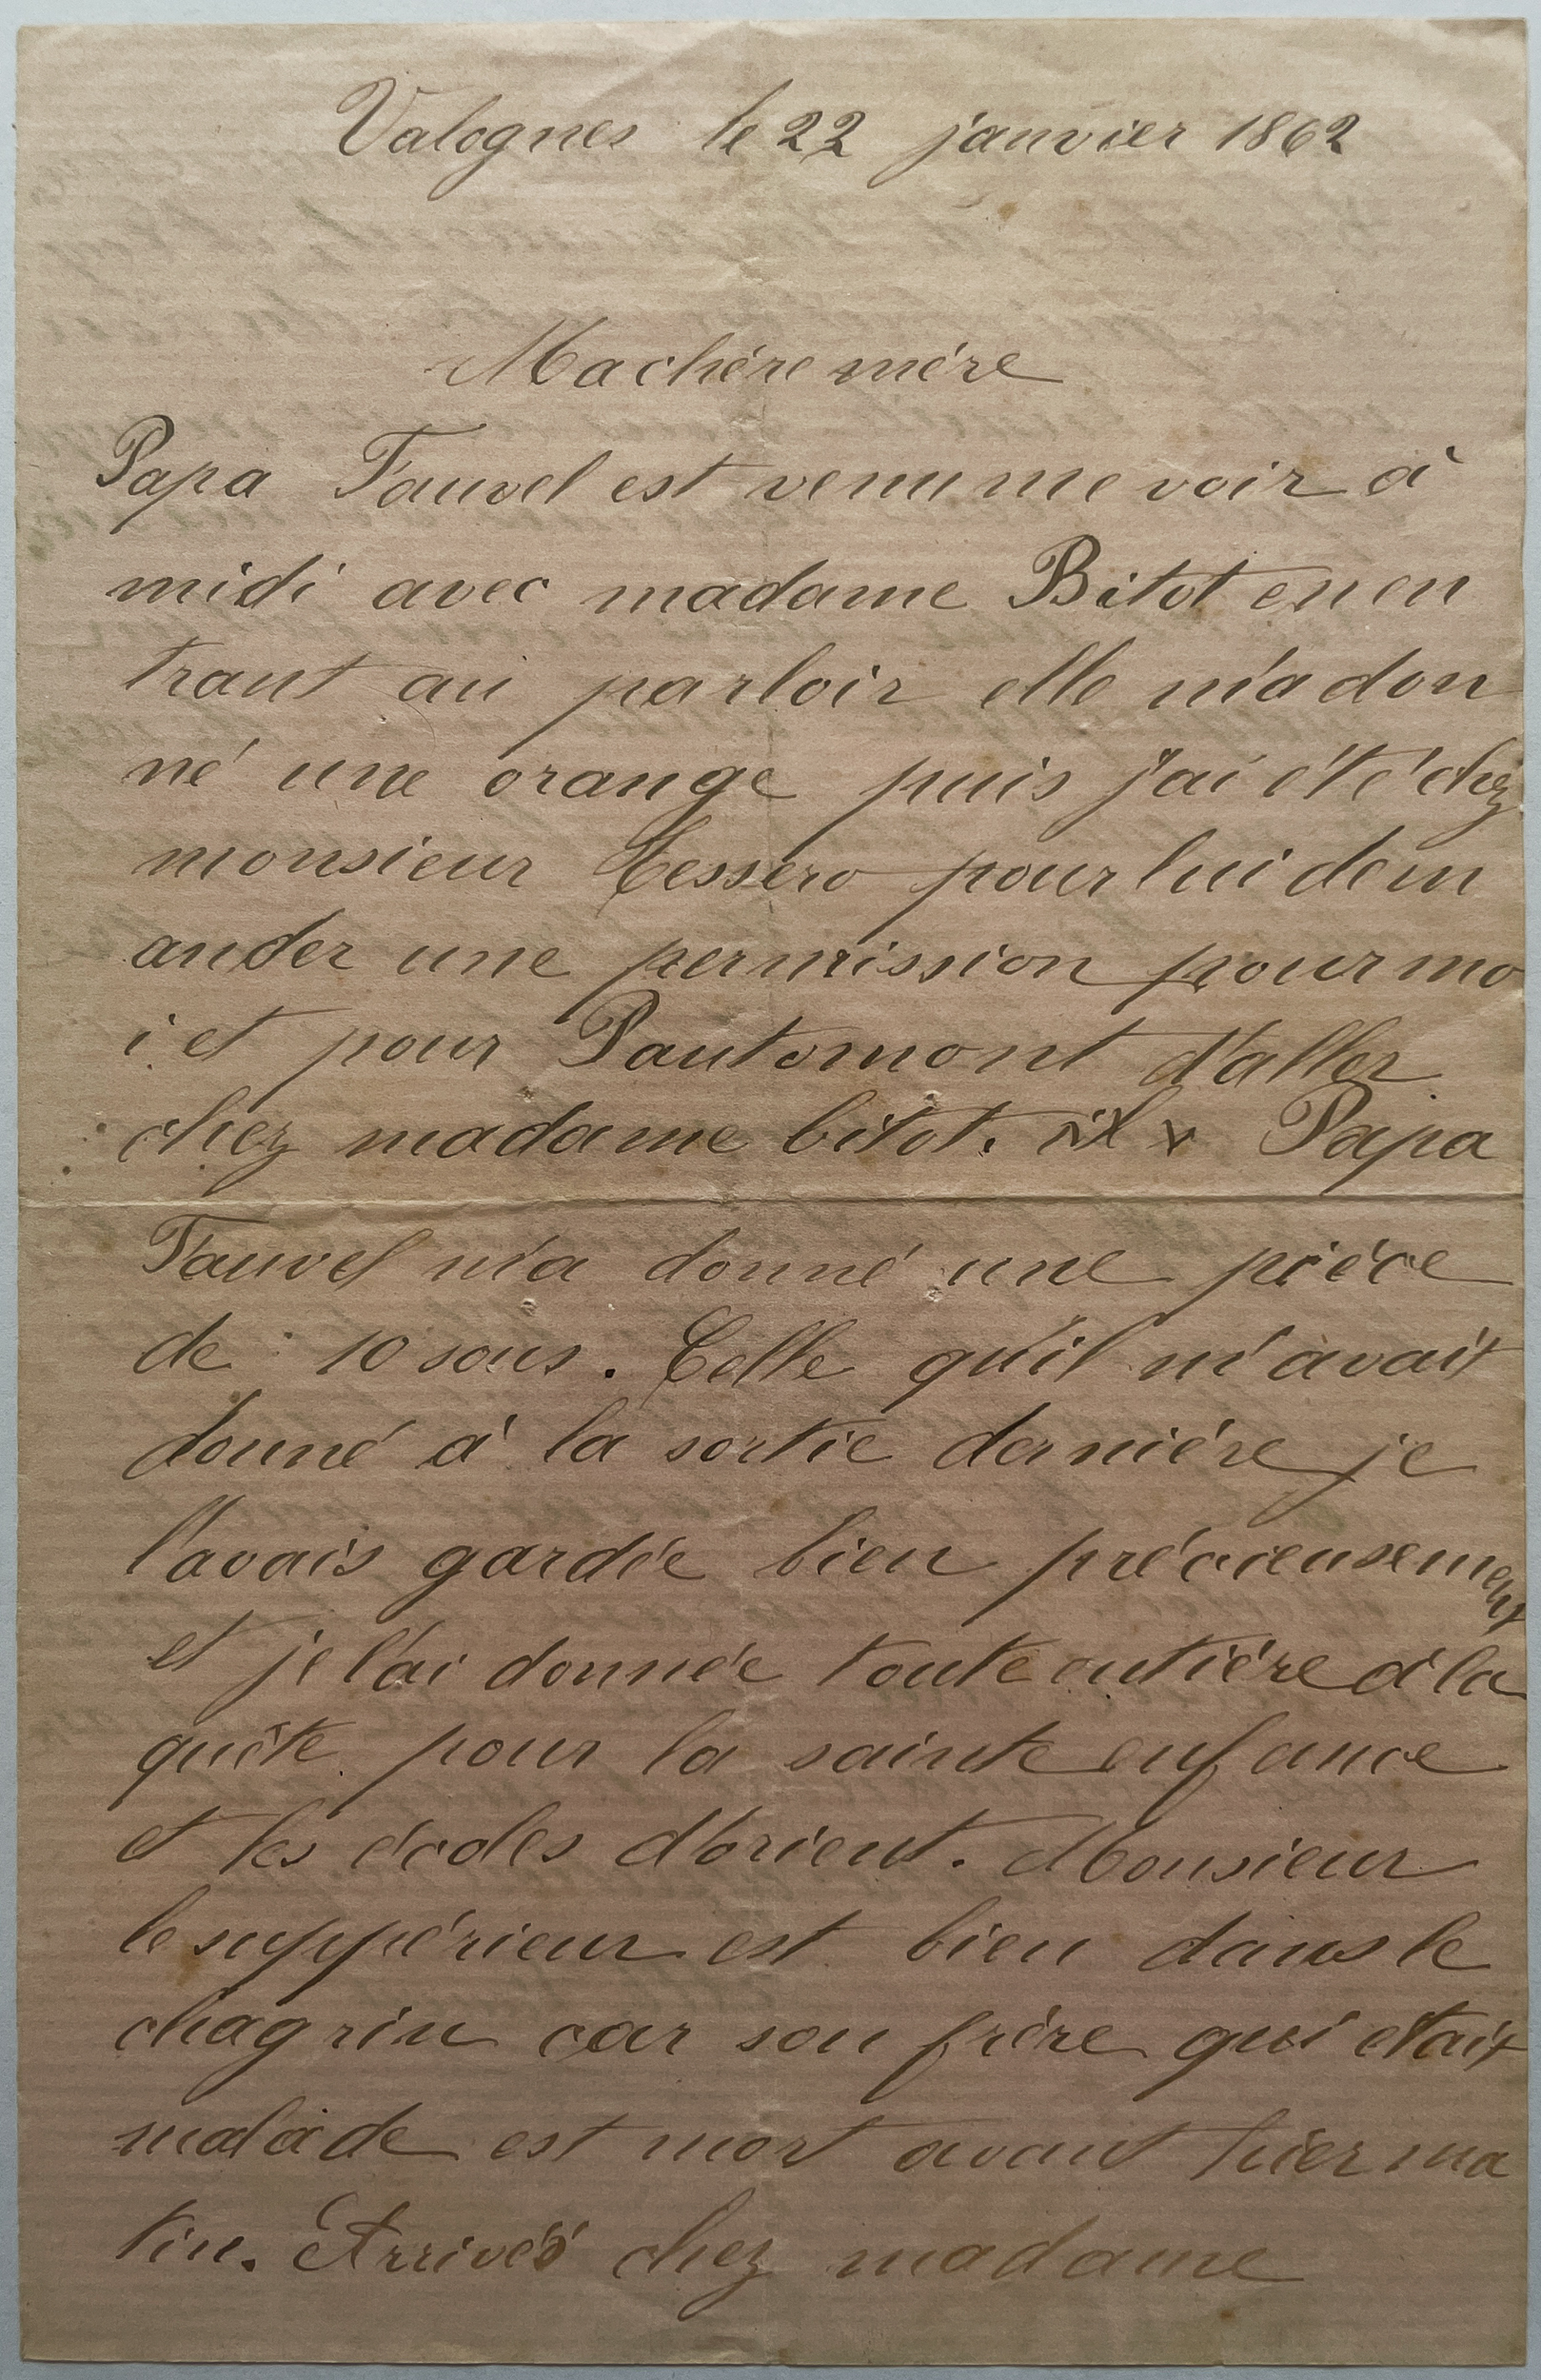 Valognes le 22 janvier 1862
Ma chère mère
Papa Fauvel est venu me voir à
midi avec madame Bitot en en
trant au parloir elle m'a don
né une orange puis j'ai été chez
monsieur Tessero pour lui dem
ander une permission pour mo
i et pour Pautomont d'aller
chez madame bitot. Papa
Fauvel m'a donné une pièce
de 10 sous. Celle qu'il m'avait
donné à la sortie dernière je
l'avais gardée bien précieusement
et je l'ai donnée toute entière à la
quête pour la sainte enfance
et les écoles d'orient. Monsieur
le suppérieur est bien dans le
chagrin car son frère qui était
malade est mort avant hier ma
tin. Arrivés chez madame